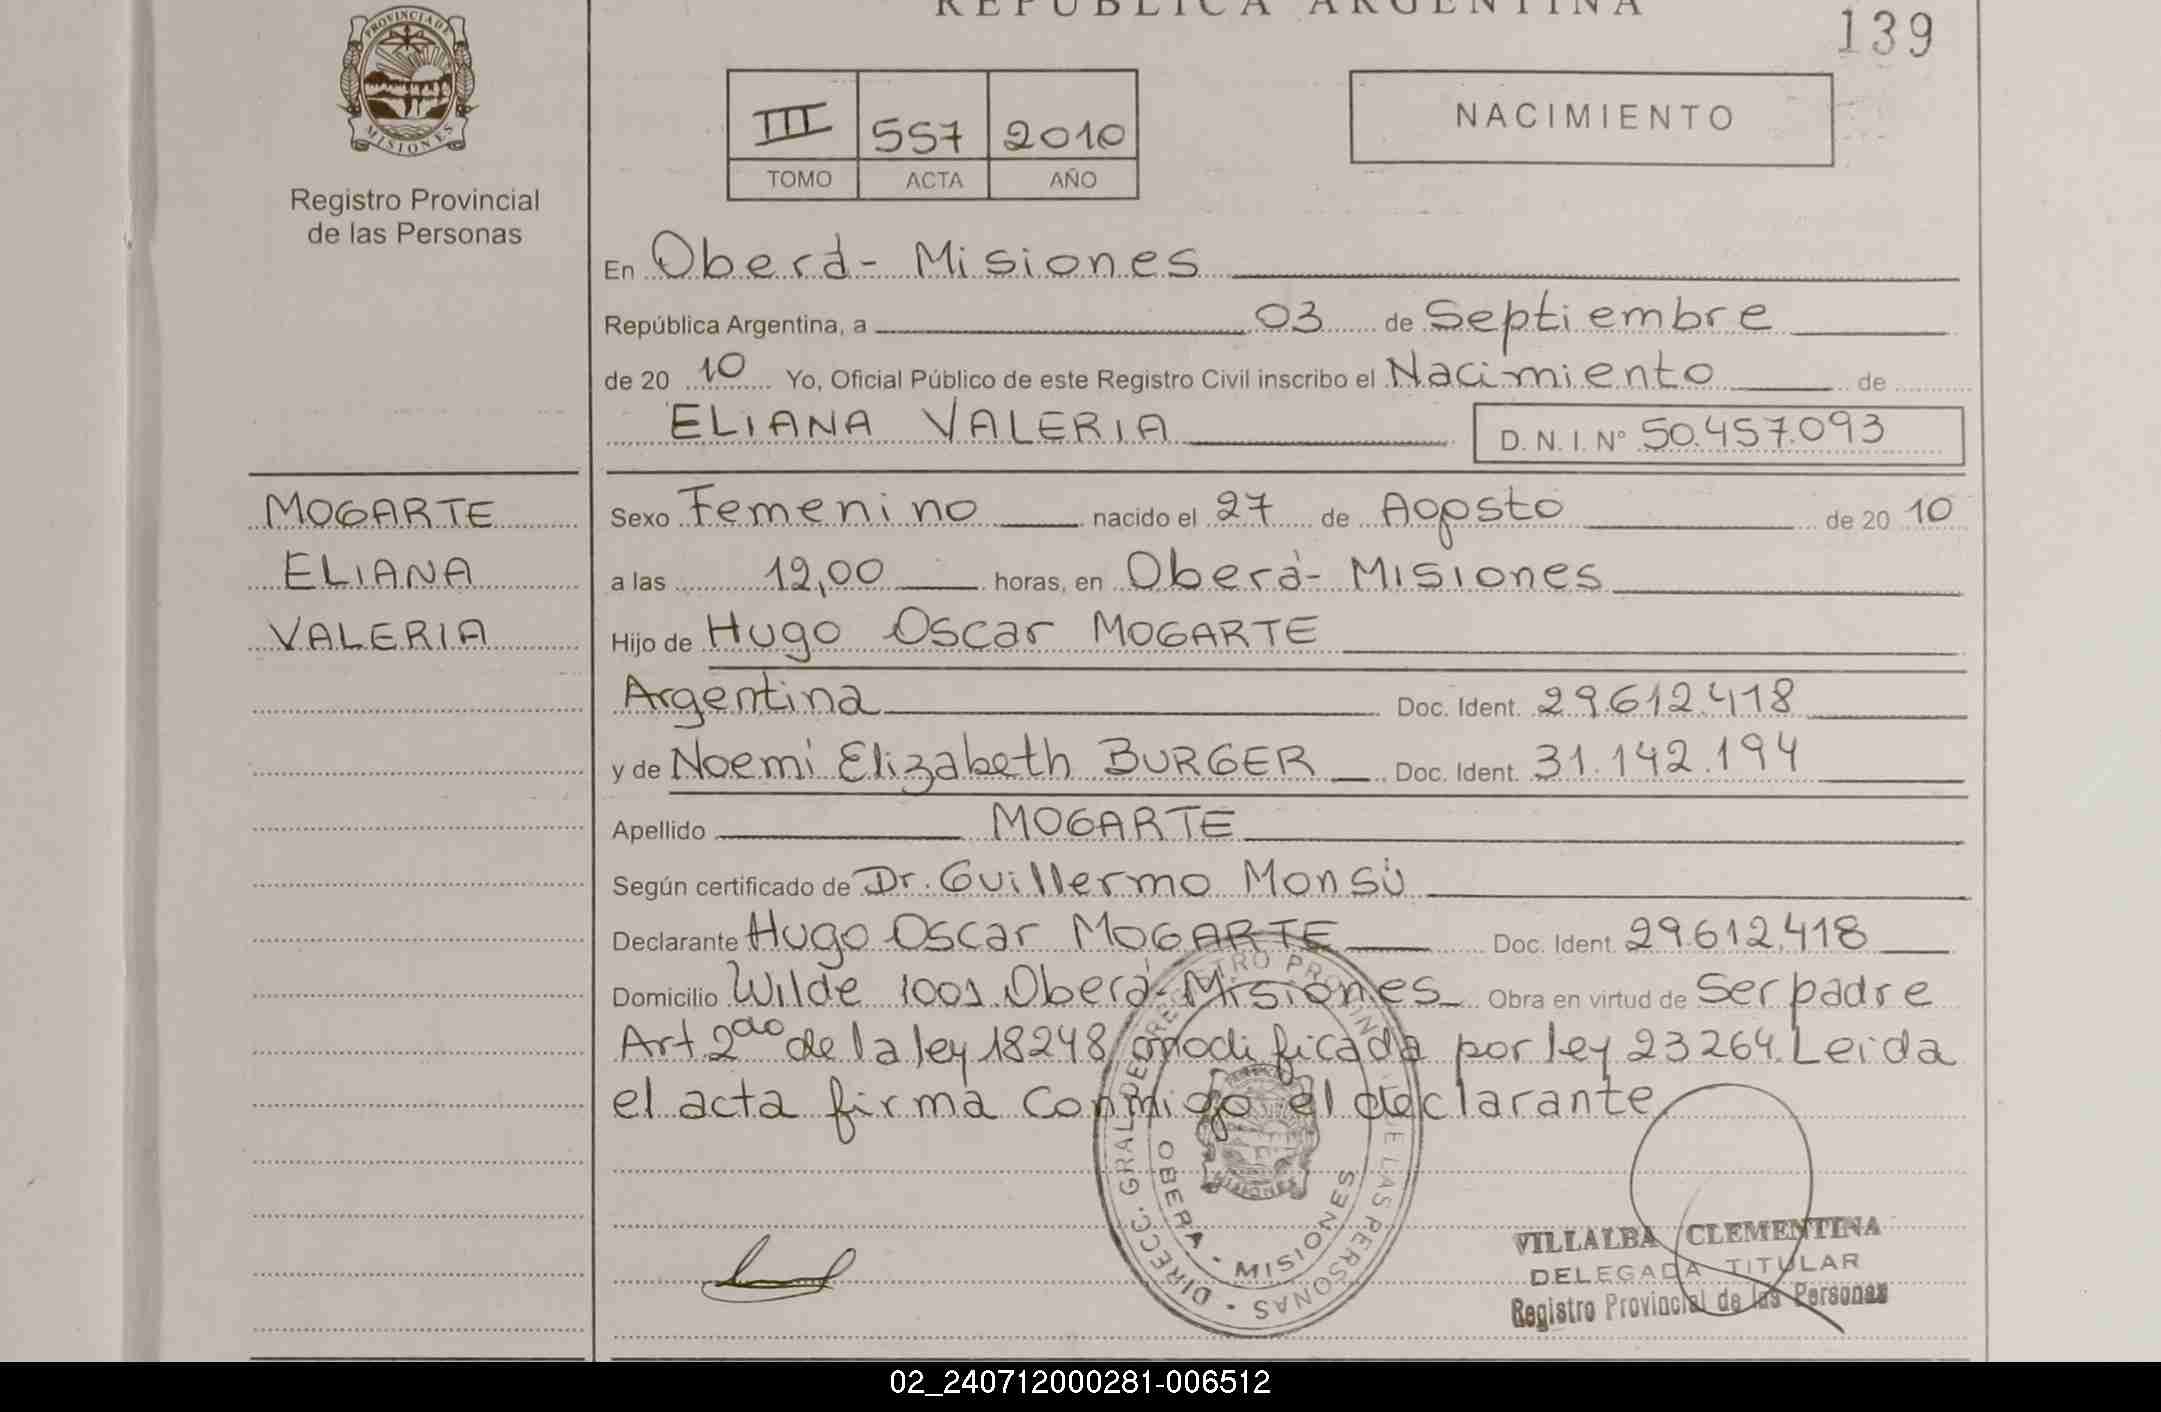 REPUBLICA ARGENTINA
139
PROVINCIA DE MISIONES
Registro Provincial
de las Personas
III 557 2010
TOMO ACTA AÑO
NACIMIENTO
En Oberá - Misiones
República Argentina, a 03 de Septiembre
de 20 10 Yo, Oficial Público de este Registro Civil inscribo el Nacimiento de
ELIANA VALERIA D. N. I. Nº 50.457.093
MOGARTE
ELIANA
VALERIA
Sexo Femenino nacido el 27 de Agosto de 20 10
a las 12,00 horas, en Oberá - Misiones
Hijo de Hugo Oscar MOGARTE
Argentina Doc. Ident. 29.612.418
y de Noemí Elizabeth BURGER Doc. Ident. 31.142.194
Apellido MOGARTE
Según certificado de Dr. Guillermo Monsú
Declarante Hugo Oscar MOGARTE Doc. Ident. 29.612.418
Domicilio Wilde 1001 Oberá - Misiones Obra en virtud de Ser padre
Art. 2do de la ley 18248 modificada por ley 23264. Leida
el acta firma conmigo el declarante
DIRECC. GRAL. DE REGISTRO PROVINCIAL DE LAS PERSONAS
OBERA - MISIONES
VILLALBA CLEMENTINA
DELEGADA TITULAR
Registro Provincial de las Personas
02_240712000281-006512